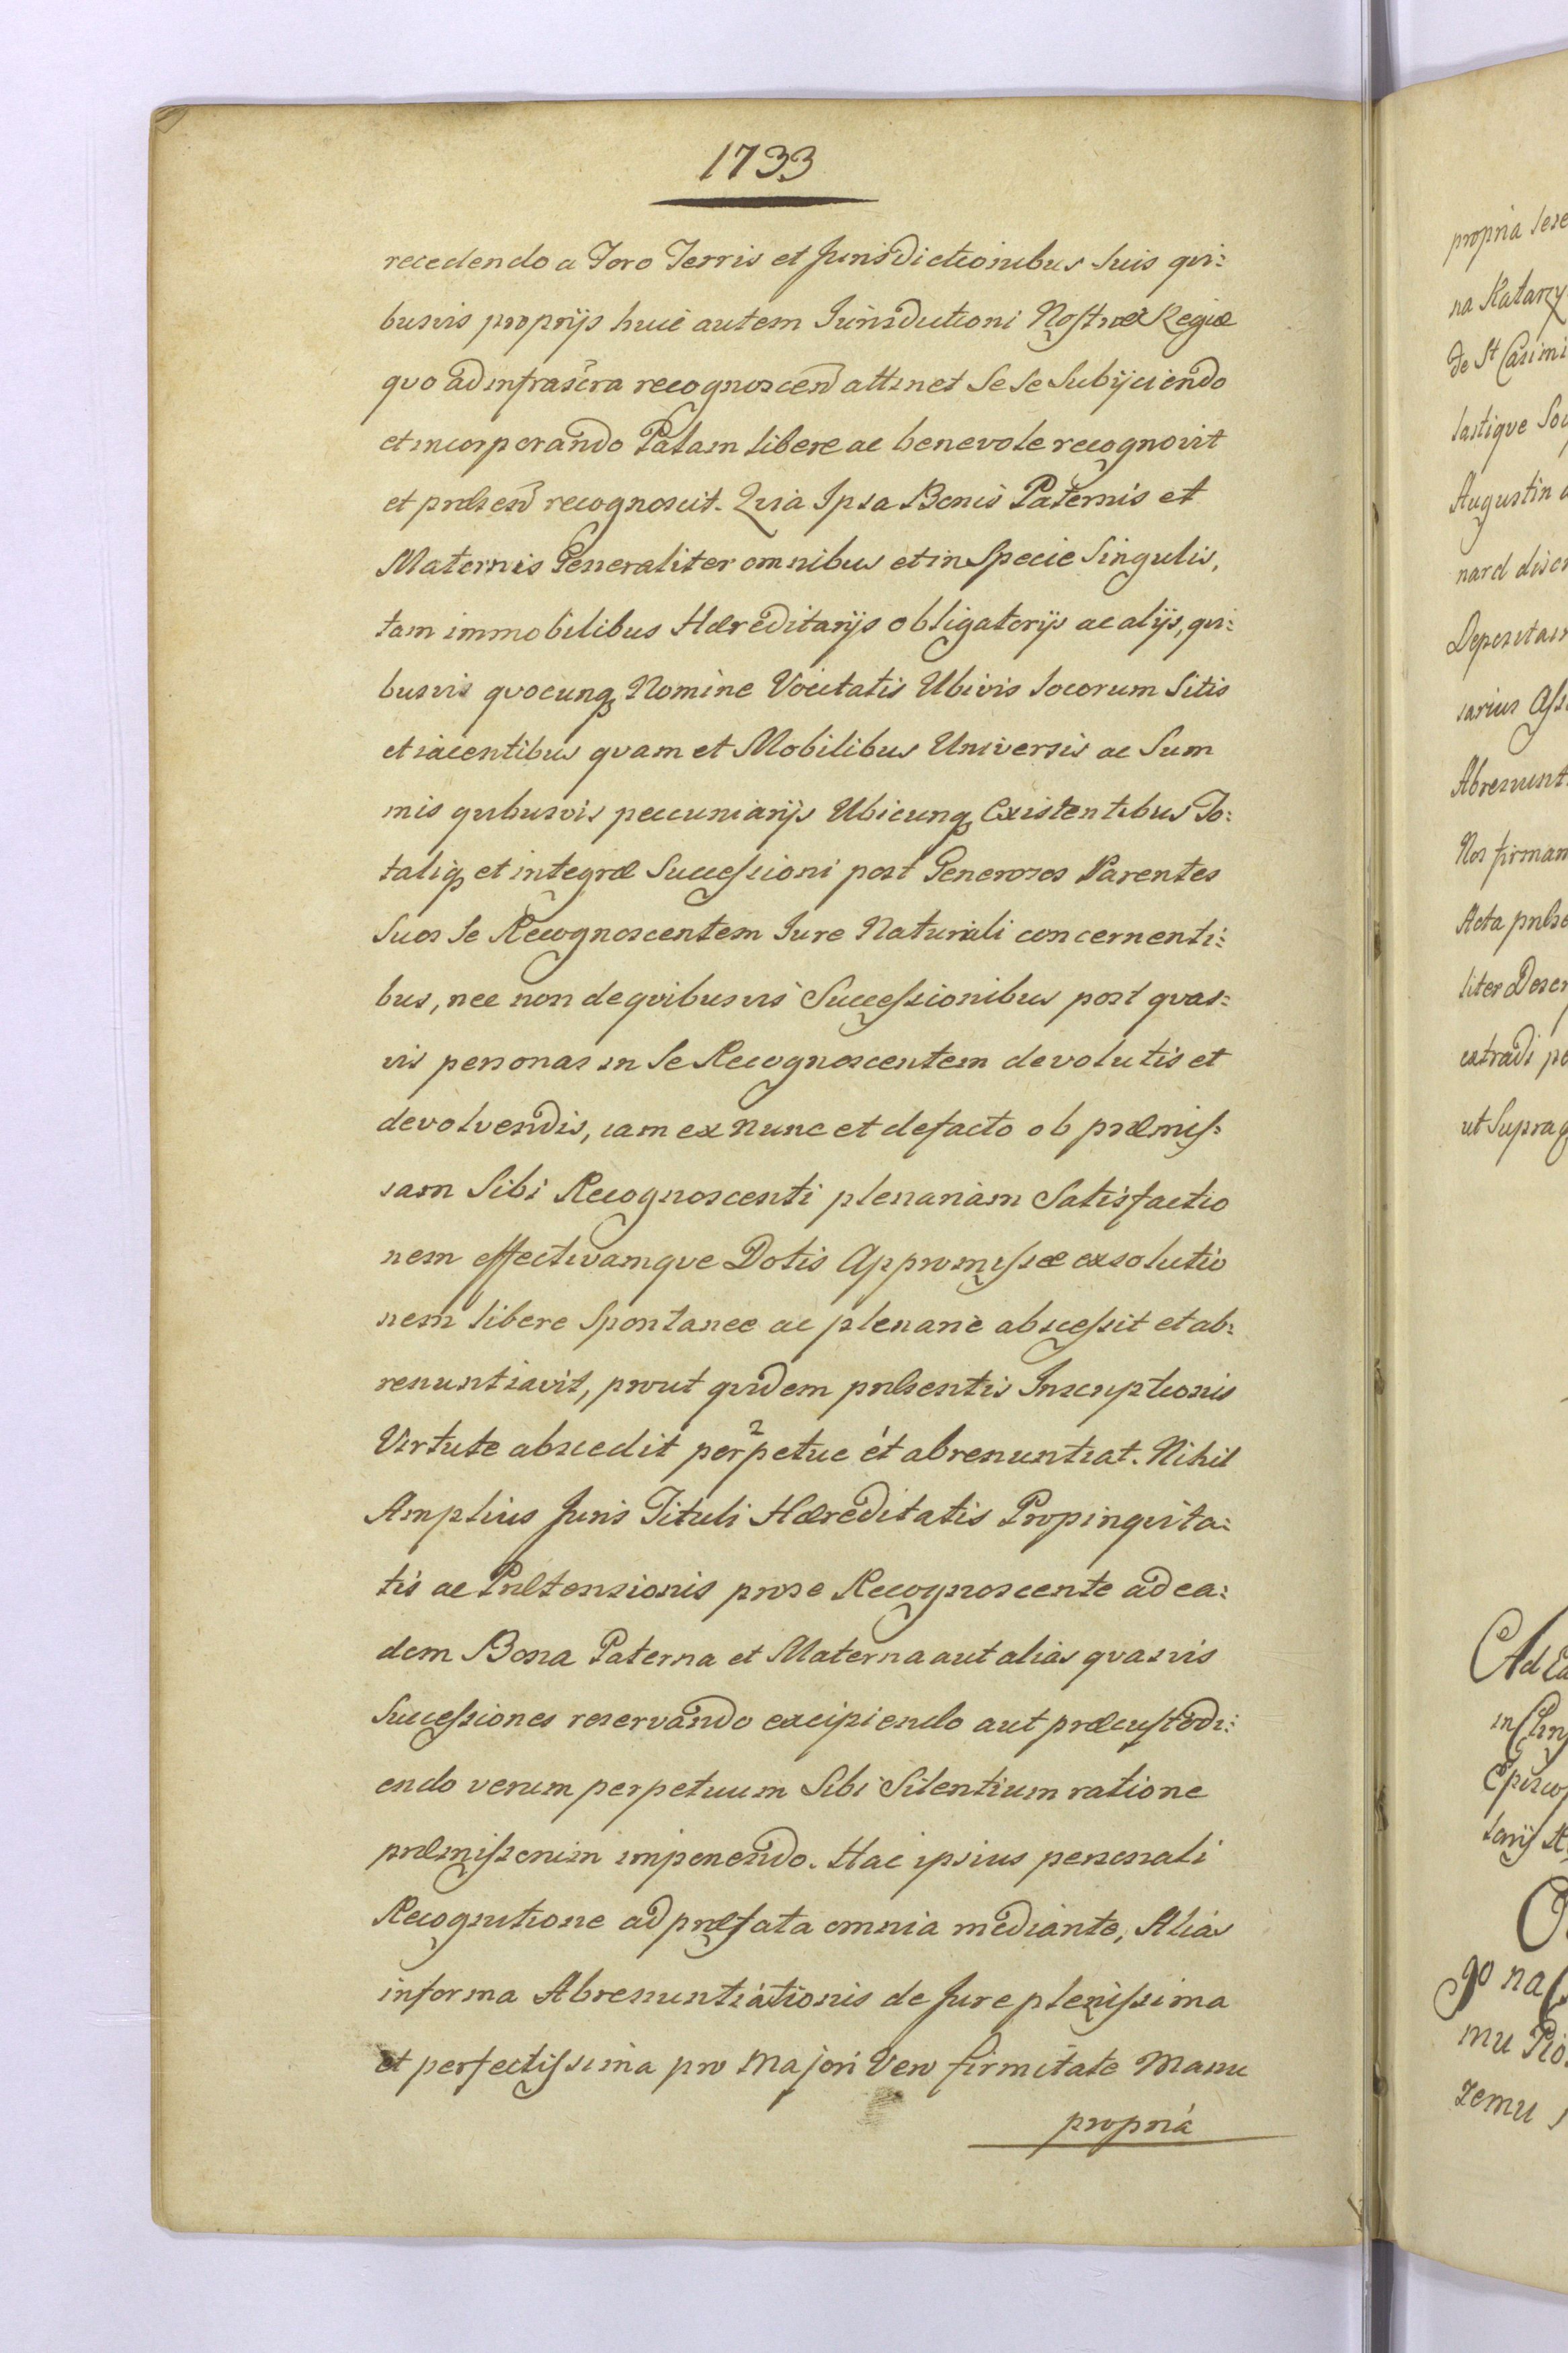 1733
recedendo a Foro Terris et Jurisdictionibus Suis qvi:
busvis proprijs huic autem Jurisdictioni Nostræ Regiæ
quo ad infrascra recognoscend attinet Se Se Subijciendo
et incorporando Palam libere ac benevole recognovit
et præsend recognoscit. Qvia Ipsa Bonis Paternis et
Maternis Generaliter omnibus et in Specie Singulis,
tam immobilibus Hæreditarijs obligatorijs ac alijs, qvi:
busvis qvocunq Nomine Vocitatis Ubivis locorum Sitis
et iacentibus qvam et Mobilibus Universis ac Sum
mis qvibusvis peccuniarijs Ubicunq Existentibus To:
taliq et integræ Successioni post Generosos Parentes
Suos Se Recognoscentem Jure Naturali concernenti:
bus, nec non de qvibusvis Successionibus post qvas:
vis personas in Se Recognoscentem devolutis et
devolvendis, iam ex nunc et defacto ob præmis:
sam Sibi Recognoscenti plenariam Satisfactio
nem effectivamqve Dotis Appromissæ exsolutio
nem libere Spontanee ac plenarie abscessit et ab:
renuntiavit, prout qvidem præsentis Inscriptionis
Virtute abscedit perpetue et abrenuntiat. Nihil
Amplius Juris Tituli Hæreditatis Propinqvita:
tis ac Prætensionis pro se Recognoscente ad ea:
dem Bona Paterna et Materna aut alias qvasvis
Successiones reservando excipiendo aut præcustodi:
endo verum perpetuum Sibi Silentium ratione
præmissorum imponendo. Hac ipsius personali
Recognitione ad præfata omnia mediante, Alias
in forma Abrenuntiationis de Jure plenissima
et perfectissima pro Majori Vero firmitate Manu
propria
propria
na Katarzy
de St Casimi
Augustin
nard
Abrenunt
Nos firman
Acta præse
extradi
ut Supra
go na
mu
zemu